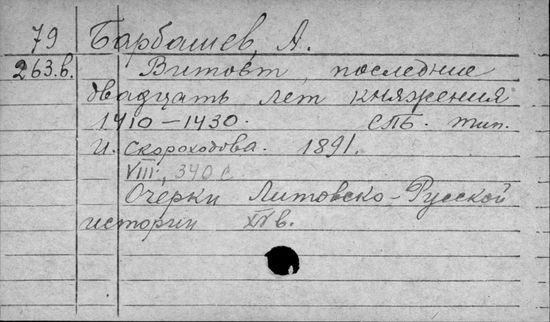 79 Барбашев, А.
263.в. Витовт, последние
двадцать лет княжения
1410–1430. СПБ. тип.
И. Скороходова. 1891.
VIII, 340 с.
Очерки Литовско-Русской
истории XV в.